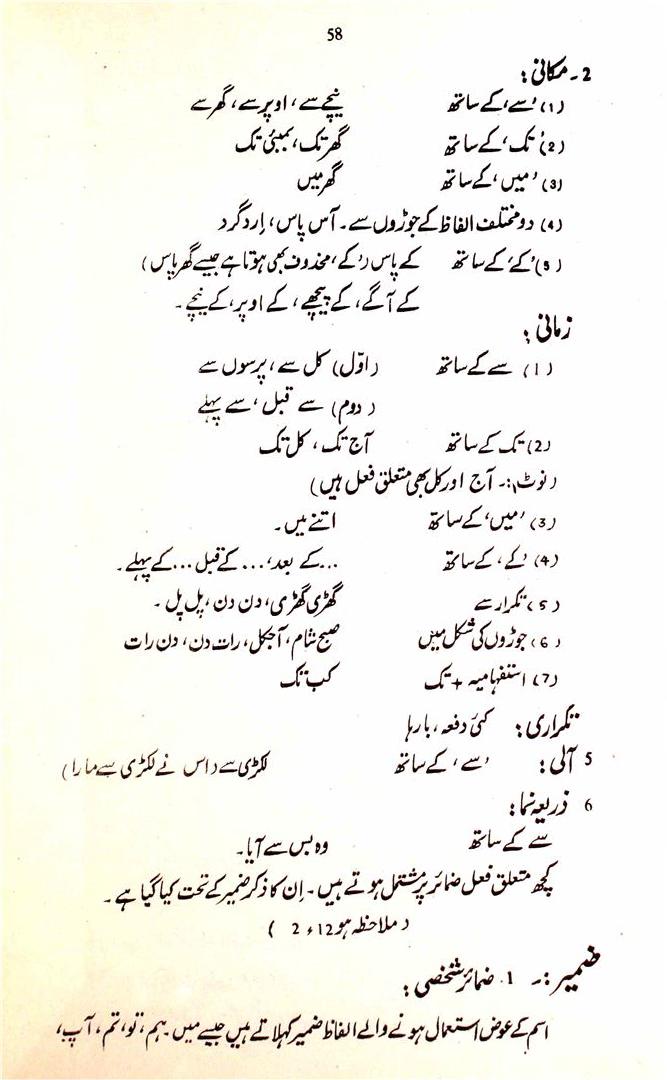 58
2 ۔ مکانی :
(1) ’سے‘ کے ساتھ نیچے سے ، اوپر سے ، گھر سے
(2) ’تک‘ کے ساتھ گھر تک ، بمبئی تک
(3) ’میں‘ کے ساتھ گھر میں
(4) دو مختلف الفاظ کے جوڑوں سے ۔ آس پاس ، اِرد گرد
(5) ’کے‘ کے ساتھ کے پاس ( ’کے‘ محذوف بھی ہوتا ہے جیسے گھر پاس )
کے آگے ، کے پیچھے ، کے اوپر ، کے نیچے ۔
زمانی :
(1) سے کے ساتھ (اوّل) کل سے ، پرسوں سے
(دوم) سے قبل ، سے پہلے
(2) تک کے ساتھ آج تک ، کل تک
(نوٹ :۔ آج اور کل بھی متعلق فعل ہیں)
(3) ’میں‘ کے ساتھ اتنے میں ۔
(4) ’کے‘ کے ساتھ ...کے بعد ، ...کے قبل ...کے پہلے ۔
(5) تکرار سے گھڑی گھڑی ، دن دن ، پل پل ۔
(6) جوڑوں کی شکل میں صبح شام ، آجکل ، رات دن ، دن رات
(7) استفہامیہ + تک کب تک
تکراری : کئی دفعہ ، بارہا
5 آلی : ’سے‘ کے ساتھ لکڑی سے (اس نے لکڑی سے مارا)
6 ذریعہ نما :
سے کے ساتھ وہ بس سے آیا ۔
کچھ متعلق فعل ضمائر پر مشتمل ہوتے ہیں ۔ اِن کا ذکر ضمیر کے تحت کیا گیا ہے ۔
( ملاحظہ ہو 12ء 2 )
ضمیر :۔ 1. ضمائر شخصی :
اسم کے عوض استعمال ہونے والے الفاظ ضمیر کہلاتے ہیں جیسے میں ۔ ہم ، تو ، تم ، آپ ،